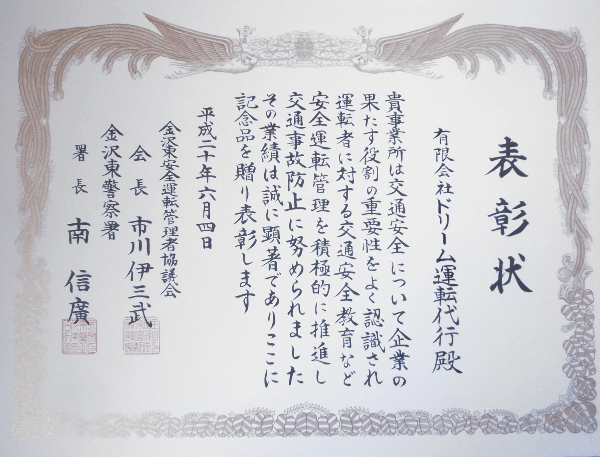 表彰状
有限会社ドリーム運転代行殿
貴事業所は交通安全について企業の
果たす役割の重要性をよく認識され
運転者に対する交通安全教育など
安全運転管理を積極的に推進し
交通事故防止に努められました
その業績は誠に顕著でありここに
記念品を贈り表彰します
平成二十年六月四日
金沢東安全運転管理者協議会
会長 市川伊三武
金沢東警察署
署長 南信廣